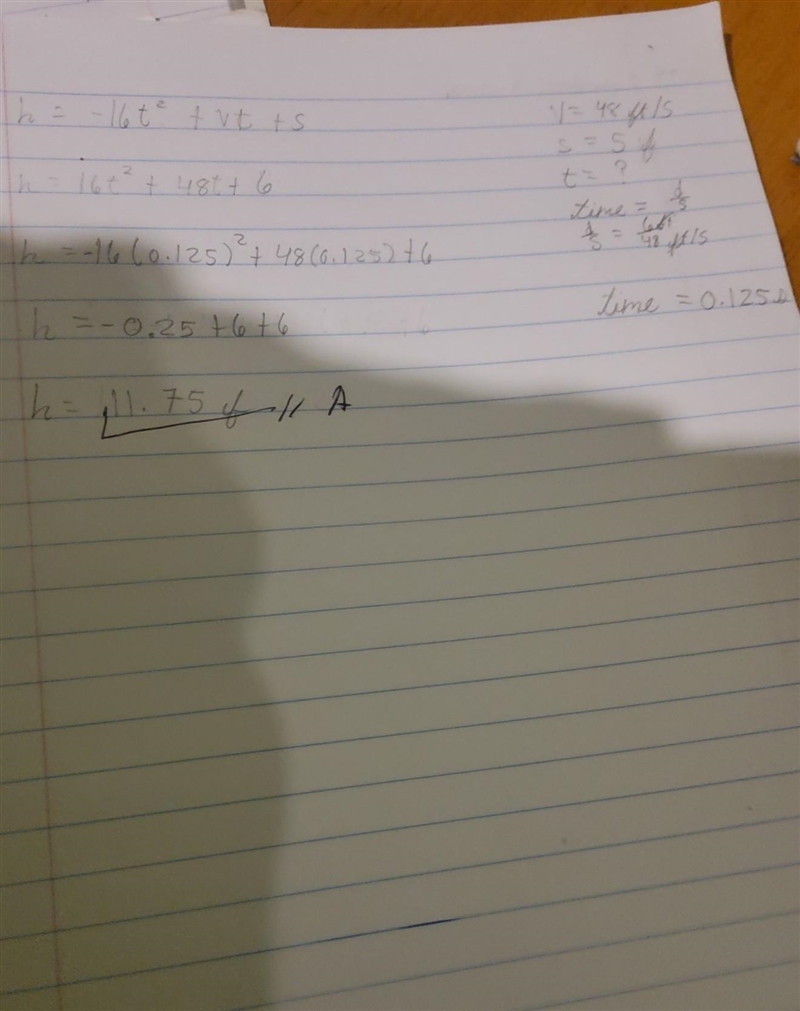 h = -16t² + vt + s
h = 16t² + 48t + 6
h = -16(0.125)² + 48(0.125) + 6
h = -0.25 + 6 + 6
h = 11.75 f // A
v = 48 ft/s
s = 5 f
t = ?
time = d/s
d/s = 6 ft/48 ft/s
time = 0.125s